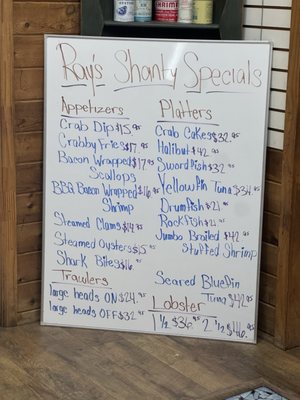 Ray's Shanty Specials
Appetizers
Crab Dip $15.95
Crabby Fries $17.95
Bacon Wrapped $17.95
Scallops
BBQ Bacon Wrapped $16.95
Shrimp
Steamed Clams $14.95
Steamed Oysters $15.95
Shark Bites $16.95
Trawlers
large heads ON $24.95
large heads OFF $32.95
Platters
Crab Cakes $32.95
Halibut $42.95
Swordfish $32.95
Yellowfin Tuna $34.95
Drumfish $21.95
Rockfish $21.95
Jumbo Broiled $42.95
Stuffed Shrimp
Seared Bluefin
Tuna $42.95
Lobster
1 1/2 $36.95 2 1/2 $46.95